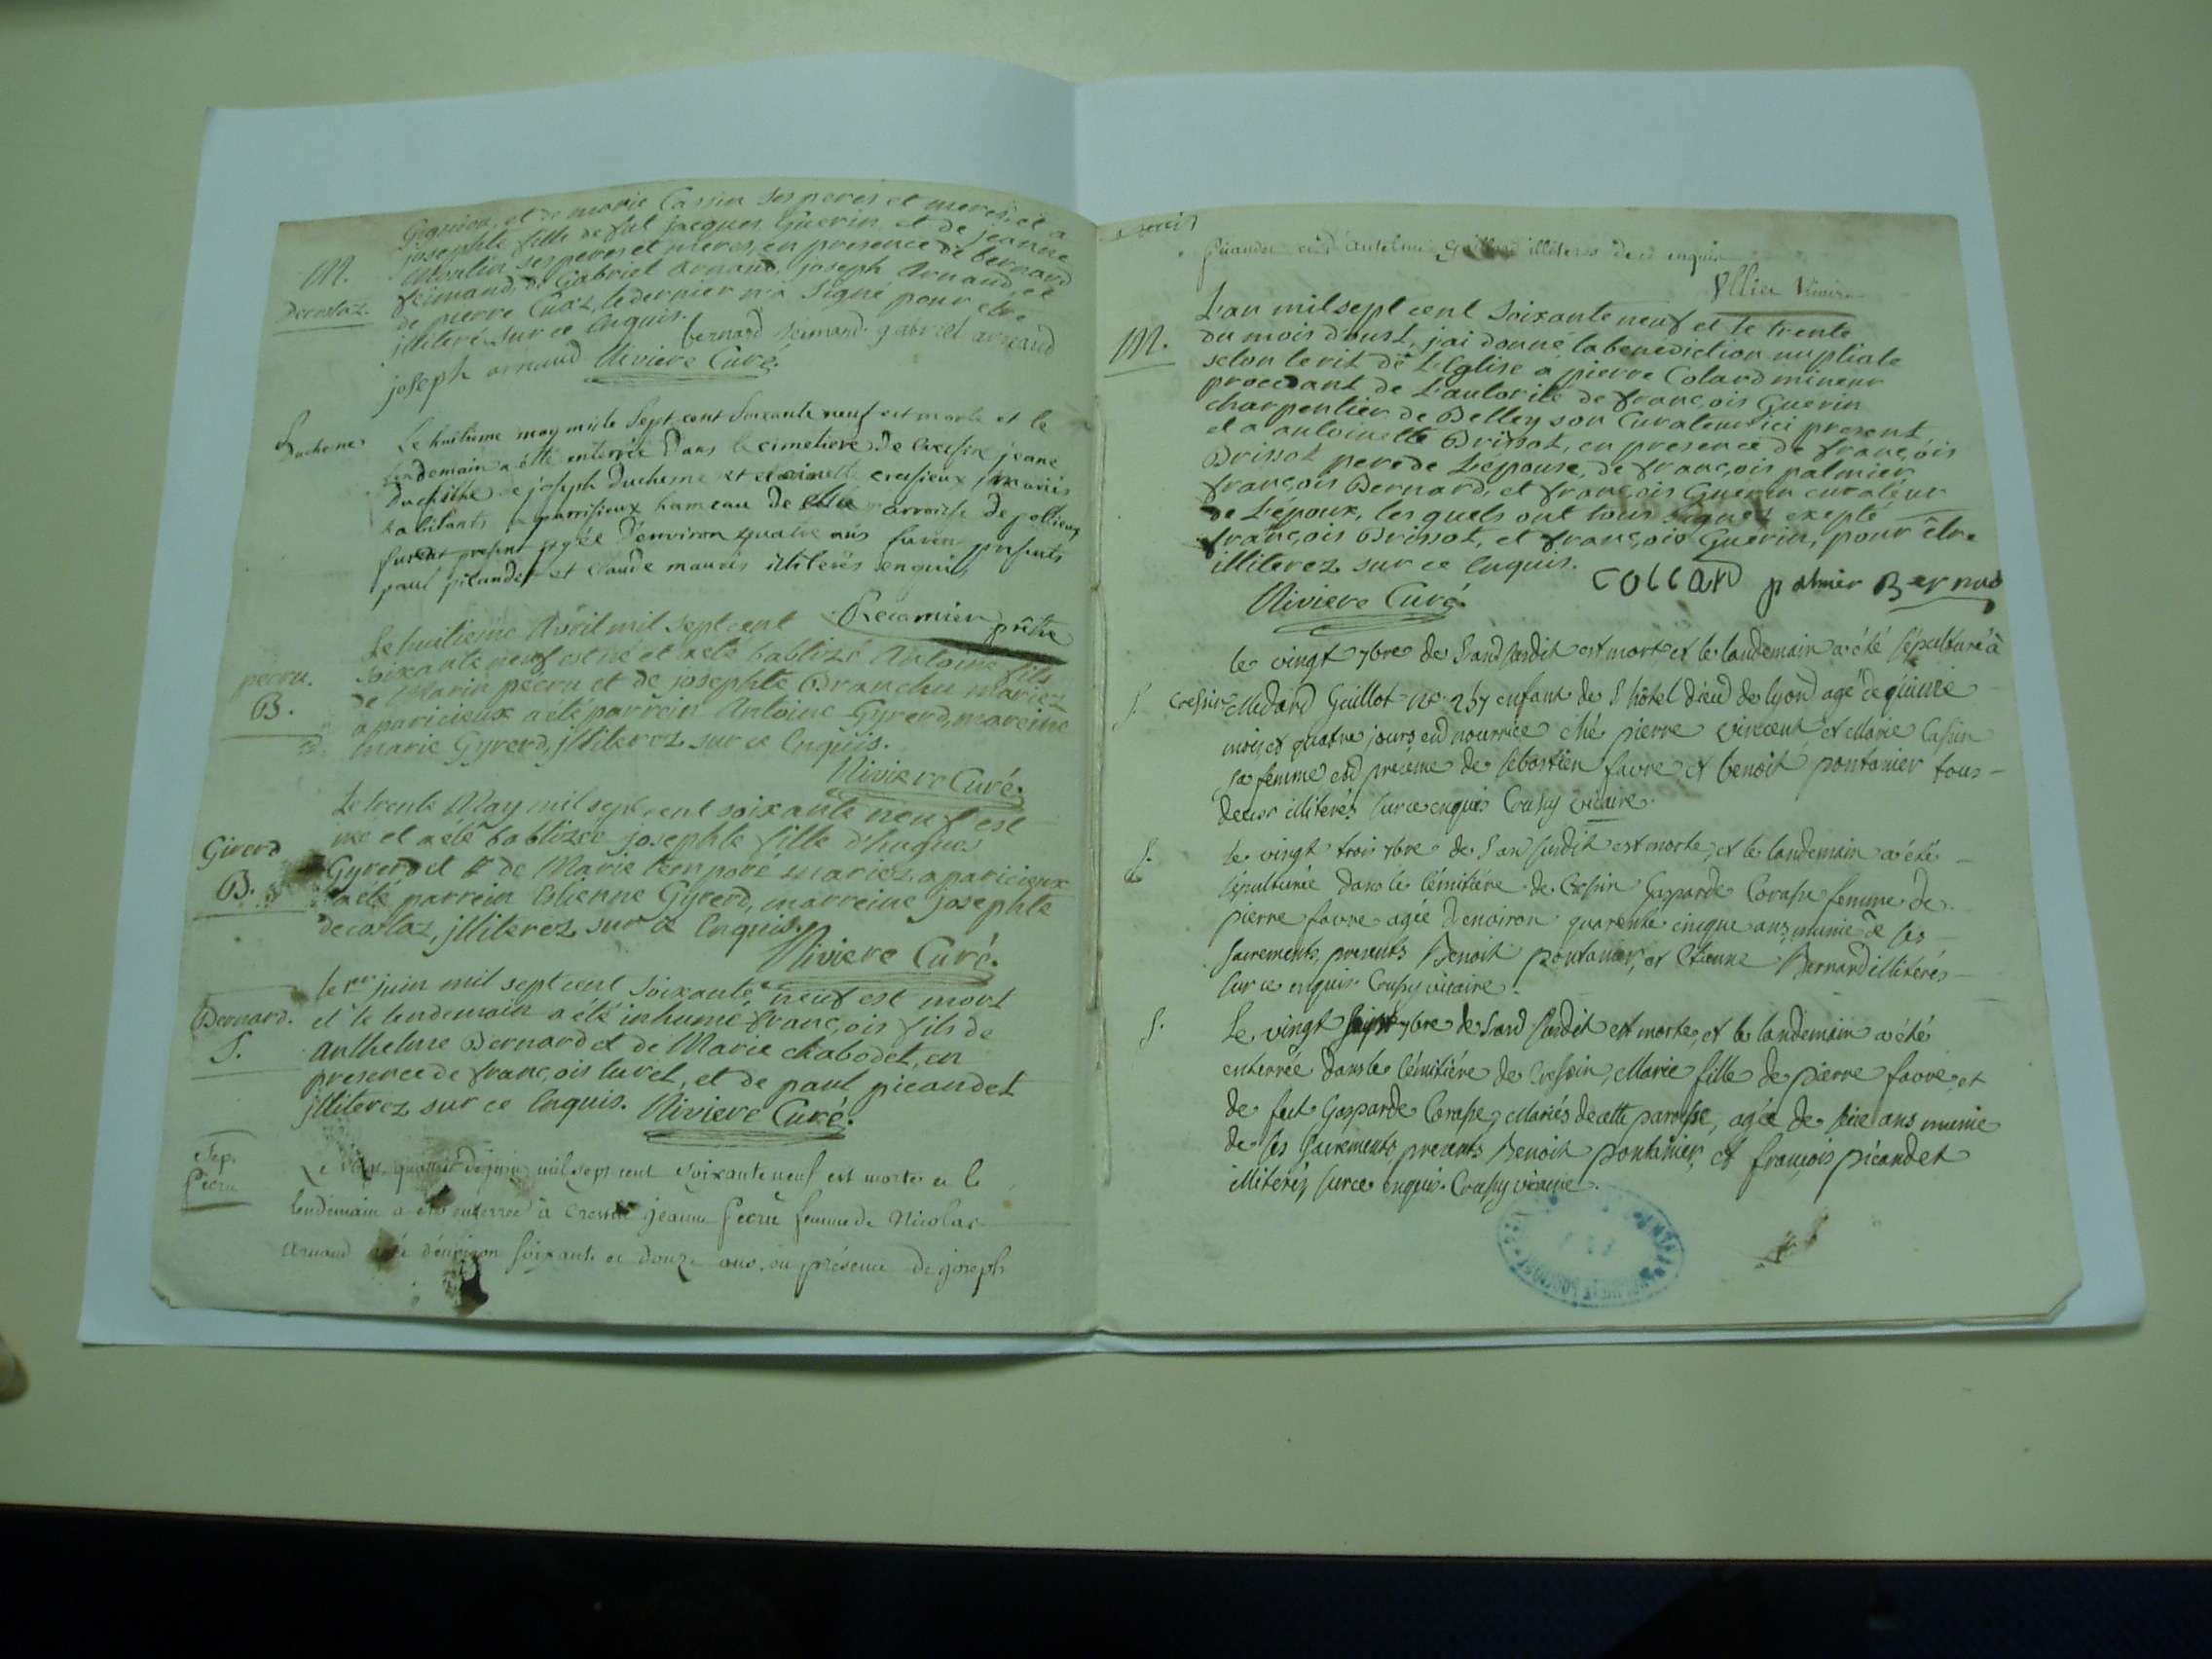 et de marie Cassin ses peres et meres, et a
josephte fille de fût jacques Guerin et de jeanne
Moalin ses peres et meres, en presence de bernard
M.
decostaz.
de Gabriel Arnaud, joseph Arnaud, et
de pierre Cuaz, le dernier n'a signé pour être
jlliteré sur ce Enquis.
bernard gabriel arnaud
joseph arnaud Riviere Curé.
Le huitieme may mille Sept cent Soixante neuf est morte et le
lendemain a été enterrée Dans le cimetiere De jeane
de joseph Duchesne et mariés
habitants a parrisieux hameau De parroisse De pollieux
agée D'environ quatre ans furent presents
paul picandet et Claude illiterés enquis
Recamier prêtre
pecru.
B.
Le huitieme Avril mil sept cent
soixante neuf est né et a eté babtizé Antoine fils
de Marin pecru et de josephte Branchu mariez
a paricieux a eté parrein Antoine Gyrerd, mareine
Marie Gyrerd, jlliterez sur ce Enquis.
Riviere Curé.
Girerd
B.
Le trente May mil sept cent soixante neuf est
née et a eté babtizée josephte fille d'hugues
Gyrerd et de Marie temporé mariez a paricieux
a été parrein Estienne Gyrerd, marreine josephte
decostaz, jlliterez sur ce Enquis.
Riviere Curé.
Bernard.
S.
le 1er juin mil sept cent soixante neuf est mort
et le lendemain a été inhumé françois fils de
Anthelme Bernard et de Marie chabodet, en
presence de françois luret, et de paul picandet
jlliterez sur ce Enquis. Riviere Curé.
Sep.
Pecru
Le de juin mil sept cent soixante neuf est morte et le
lendemain a été enterrée à Cressin jeanne Pecru femme de Nicolas
Arnaud agée d'environ soixante et douze ans, en présence de joseph
picandet et d'antelme illiterés de ce enquis
M.
L'an mil sept cent soixante neuf et le trente
du mois d'oust, j'ai donné la bénédiction nuptiale
selon le rit de L'Eglise a pierre Colard mineur
procedant de L'autorité de françois Guerin
charpentier de Belley son Curateur ici present
et a antoinette Brissot, en presence de françois
Brissot pere de L'épouse, de françois palmier
françois Bernard, et françois Guerin curateur
de L'époux, les quels ont tous signez exepté
françois Brissot, et françois Guerin, pour être
illiterez sur ce Enquis.
collard palmier Bernard
Riviere Curé.
le vingt 7bre de L'and susdit est mort et le landemain a été sépulturé à
S. Cressin Medard Guillot no. 257 enfant de l'hôtel Dieud de lyon agé de quinze
mois et quatre jours end nourrice ché pierre vincent et Marie Cassin
sa femme end presence de sebastien favre et benoit pontanier tous
deux illiterés sur ce enquis vicaire.
S.
Le vingt trois 7bre de L'an susdit est morte, et le landemain a été
sépulturée dans le cémitiére de Cressin Gasparde femme de
pierre favre agée D'environ quarente cinque ans, munie de ses
sacrements, presents Benoit pontanier, et Etienne Bernard illitérés
sur ce enquis vicaire.
S.
Le vingt 7bre de L'and susdit est morte, et le landemain a été
enterrée dans le cémitiére de Cressin, Marie fille de pierre favre et
de feüt Gasparde mariés de cette paroisse, agée de seize ans munie
de ses sacrements, presents Benoit pontanier, et françois picandet
illitérés sur ce enquis. vicaire.